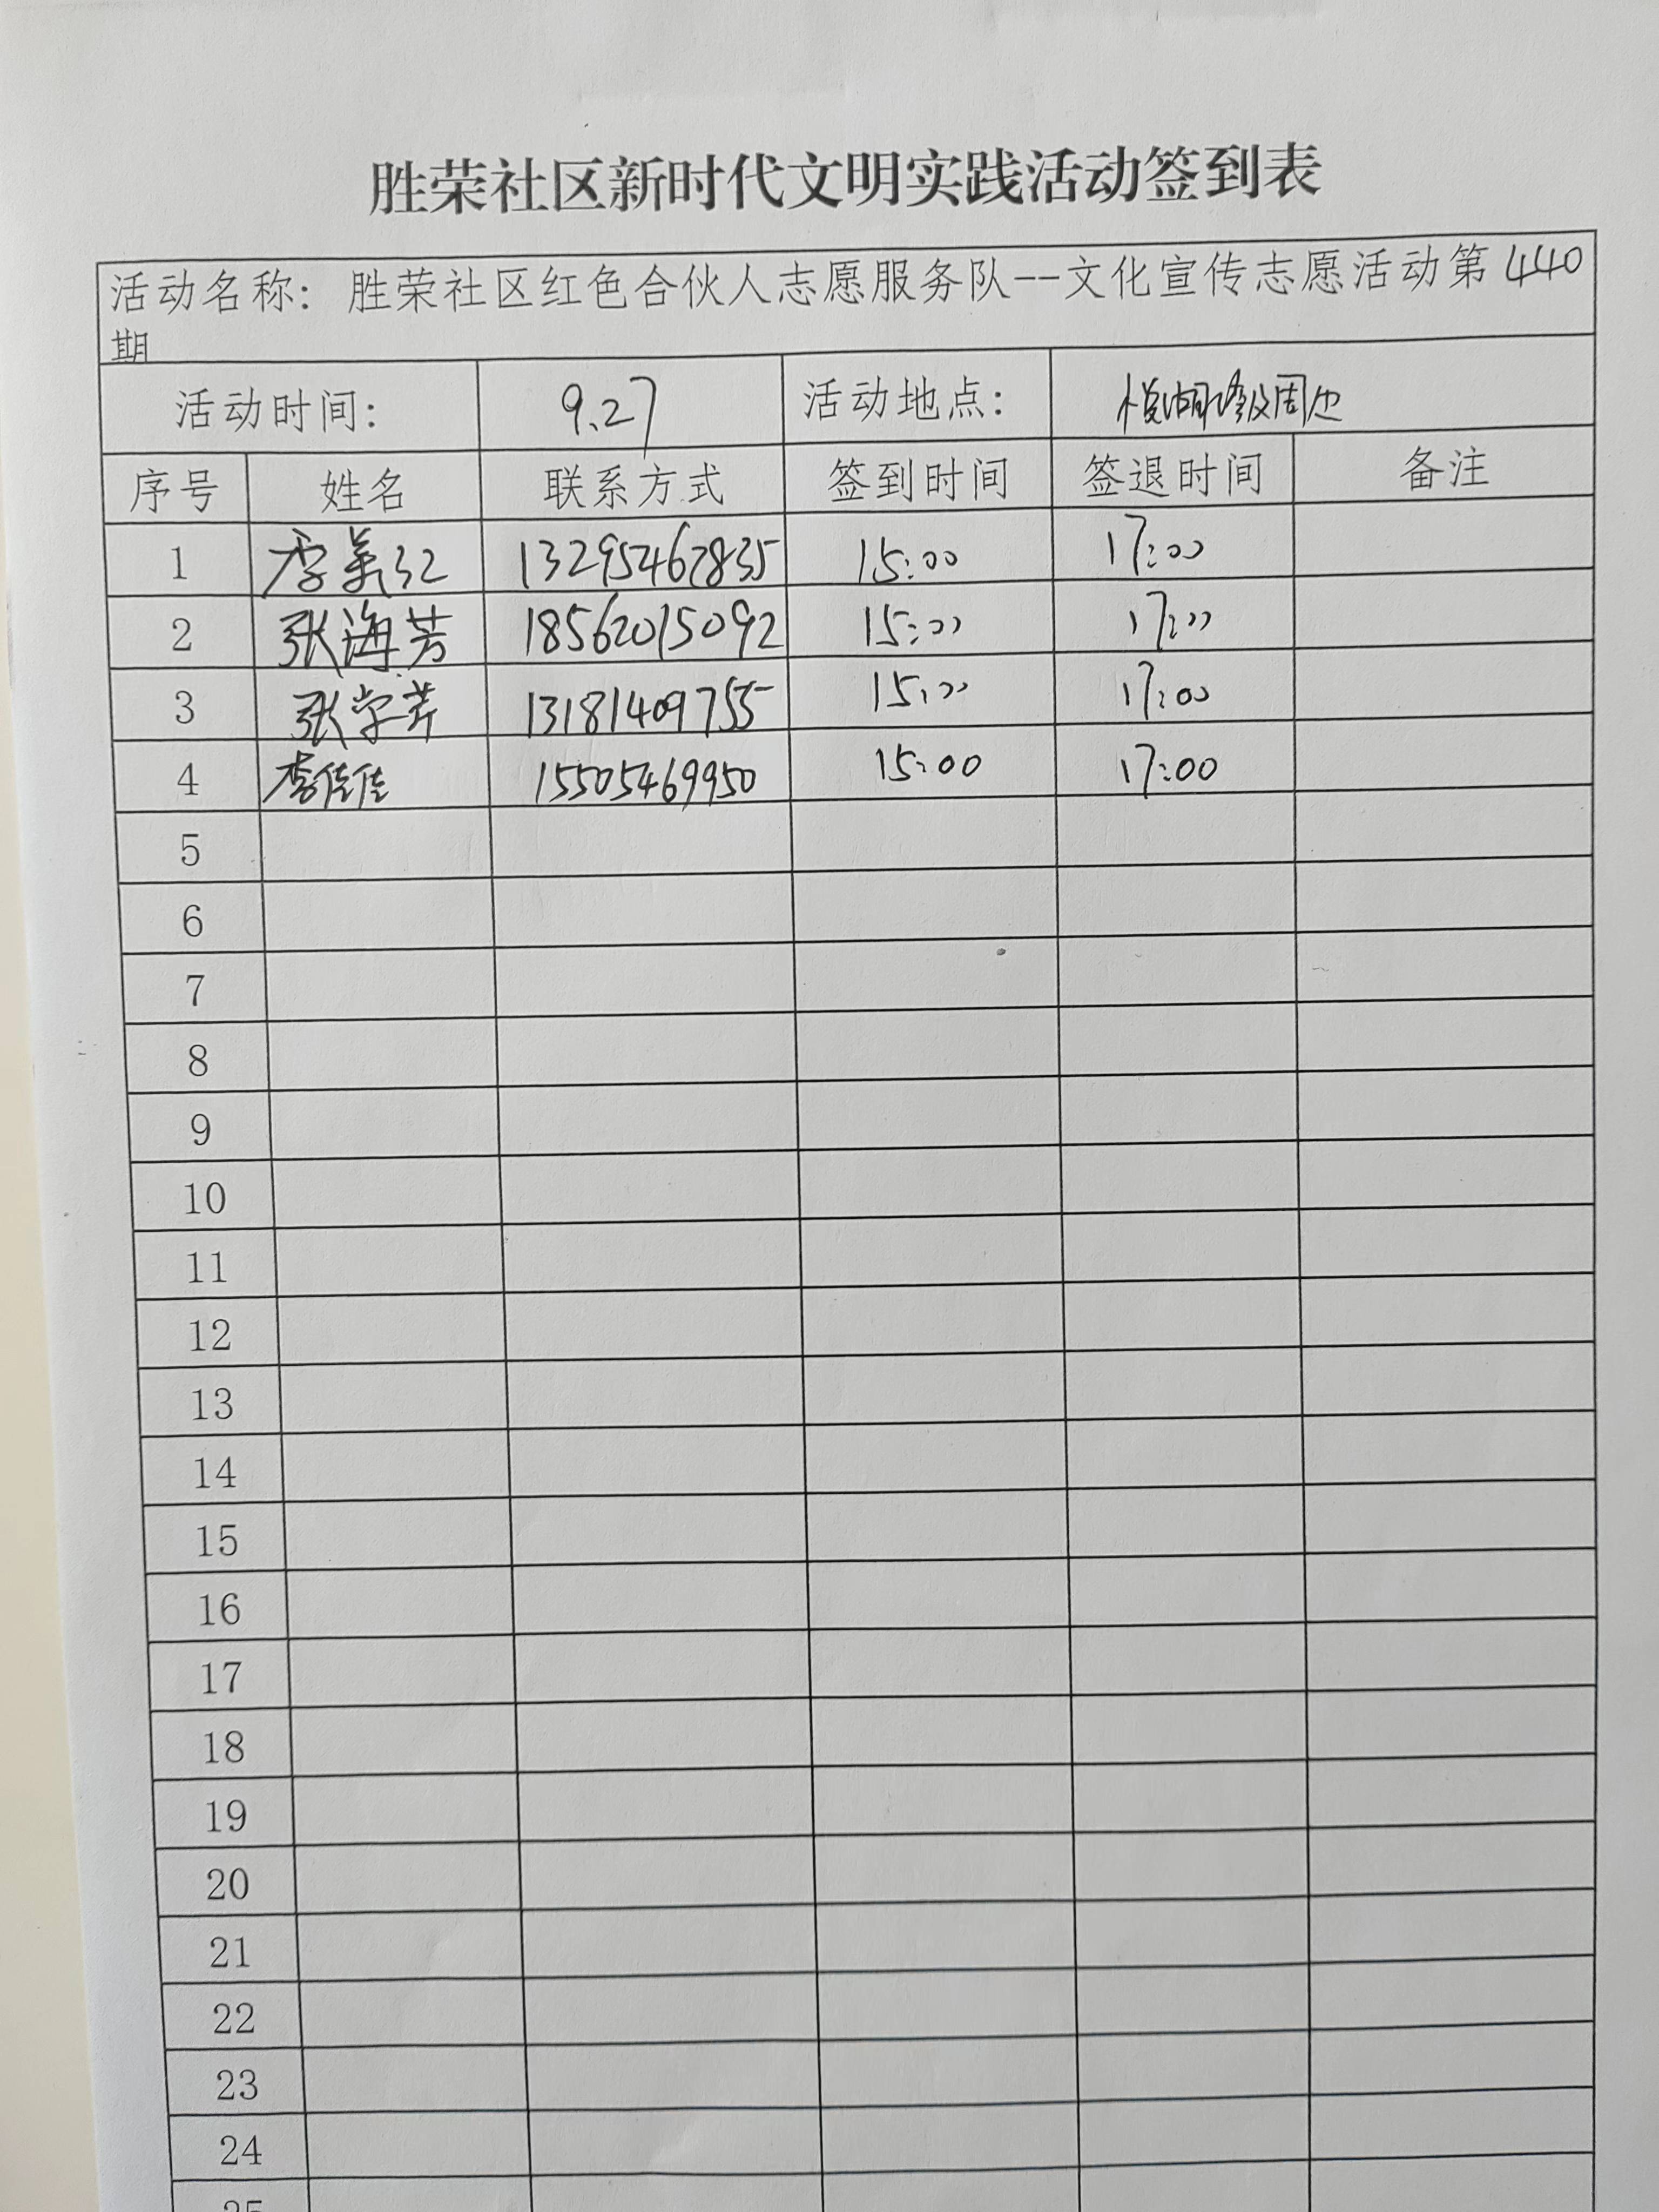 胜荣社区新时代文明实践活动签到表
活动名称: 胜荣社区红色合伙人志愿服务队--文化宣传志愿活动第440
期
活动时间: 9.27 活动地点: 悦湖路及周边
序号 姓名 联系方式 签到时间 签退时间 备注
1 李美 13295467835 15:00 17:00
2 张海芳 18562015092 15:00 17:00
3 张学芹 13181409755 15:00 17:00
4 李佳佳 15505469950 15:00 17:00
5
6
7
8
9
10
11
12
13
14
15
16
17
18
19
20
21
22
23
24
25